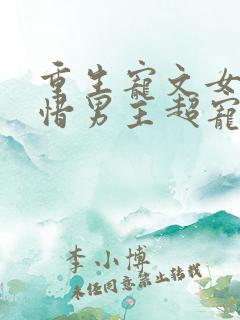 重生寵文女
惜男主超寵
李小博
未经同意禁止转载